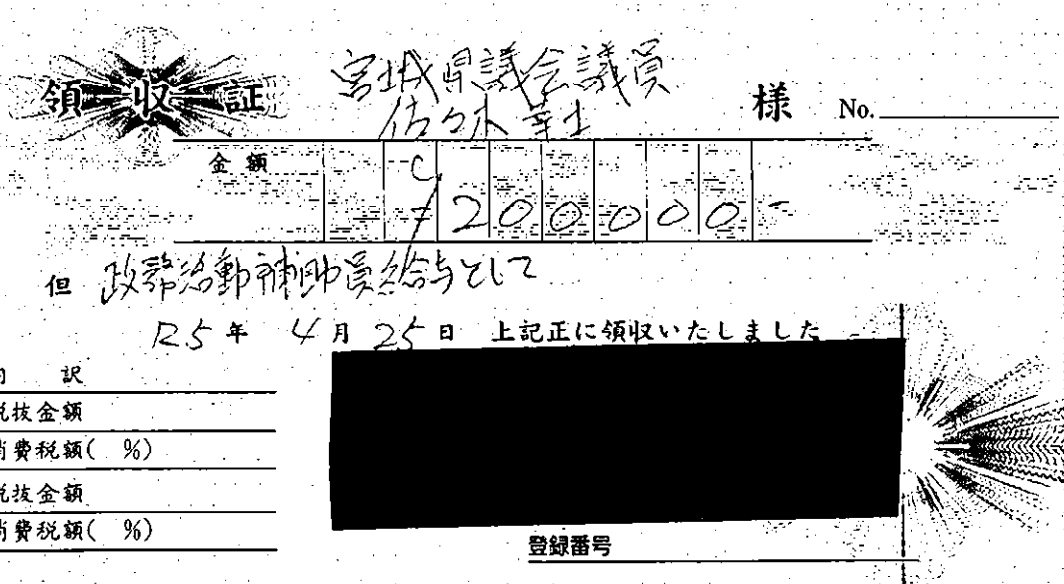 領収証
宮城県議会議員
佐々木幸士 様 No.
金額 200000-
但 政務活動補助員給与として
R5年 4月 25日 上記正に領収いたしました
訳
税抜金額
消費税額( %)
税抜金額
消費税額( %)
登録番号